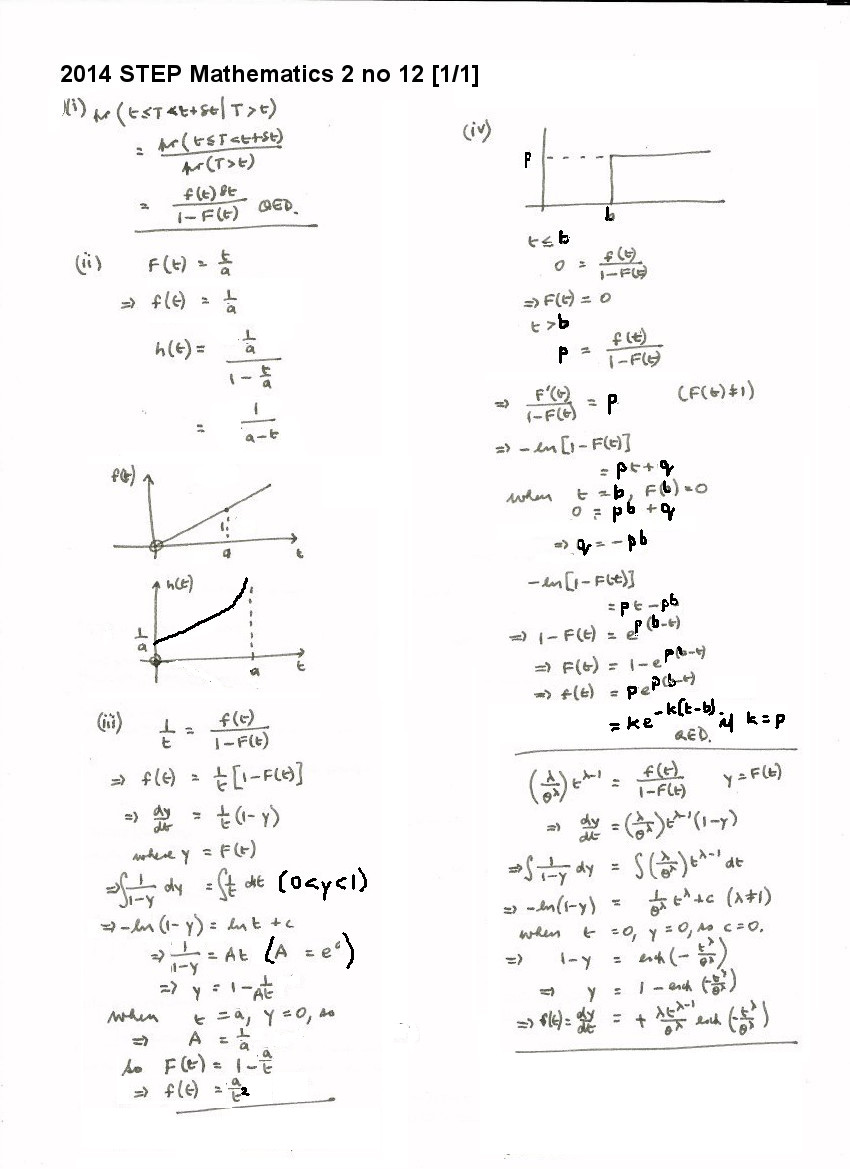 2014 STEP Mathematics 2 no 12 [1/1]
(i) pr(t≤T<t+δt|T>t)
= pr(t≤T<t+δt) / pr(T>t)
= f(t)δt / 1-F(t) QED.
(ii) F(t) = t/a
⇒ f(t) = 1/a
h(t) = (1/a) / (1 - t/a)
= 1/(a-t)
f(t)
1
a
t
h(t)
1/a
a
t
(iii) 1/t = f(t) / 1-F(t)
⇒ f(t) = 1/t [1-F(t)]
⇒ dy/dt = 1/t (1-y)
where y = F(t)
⇒ ∫ 1/(1-y) dy = ∫ 1/t dt (0<y<1)
⇒ -ln(1-y) = ln t + c
⇒ 1/(1-y) = At (A = e^c)
⇒ y = 1 - 1/At
when t = a, y = 0, so
⇒ A = 1/a
So F(t) = 1 - a/t
⇒ f(t) = a/t²
(iv)
p
b
t ≤ b
0 = f(t) / 1-F(t)
⇒ F(t) = 0
t > b
p = f(t) / 1-F(t)
⇒ F'(t) / 1-F(t) = p (F(t)≠1)
⇒ -ln[1-F(t)]
= pt + q
when t = b, F(b) = 0
0 = pb + q
⇒ q = -pb
-ln[1-F(t)]
= pt - pb
⇒ 1-F(t) = e^p(b-t)
⇒ F(t) = 1 - e^p(b-t)
⇒ f(t) = pe^p(b-t)
= ke^-k(t-b) if k = p
QED.
(λ/θ^λ) t^λ-1 = f(t) / 1-F(t) y = F(t)
⇒ dy/dt = (λ/θ^λ) t^λ-1 (1-y)
⇒ ∫ 1/(1-y) dy = ∫ (λ/θ^λ) t^λ-1 dt
⇒ -ln(1-y) = 1/θ^λ t^λ + c (λ≠1)
when t = 0, y = 0, so c = 0.
⇒ 1-y = exp(-t^λ/θ^λ)
⇒ y = 1 - exp(-t^λ/θ^λ)
⇒ f(t) = dy/dt = + λt^λ-1/θ^λ exp(-t^λ/θ^λ)